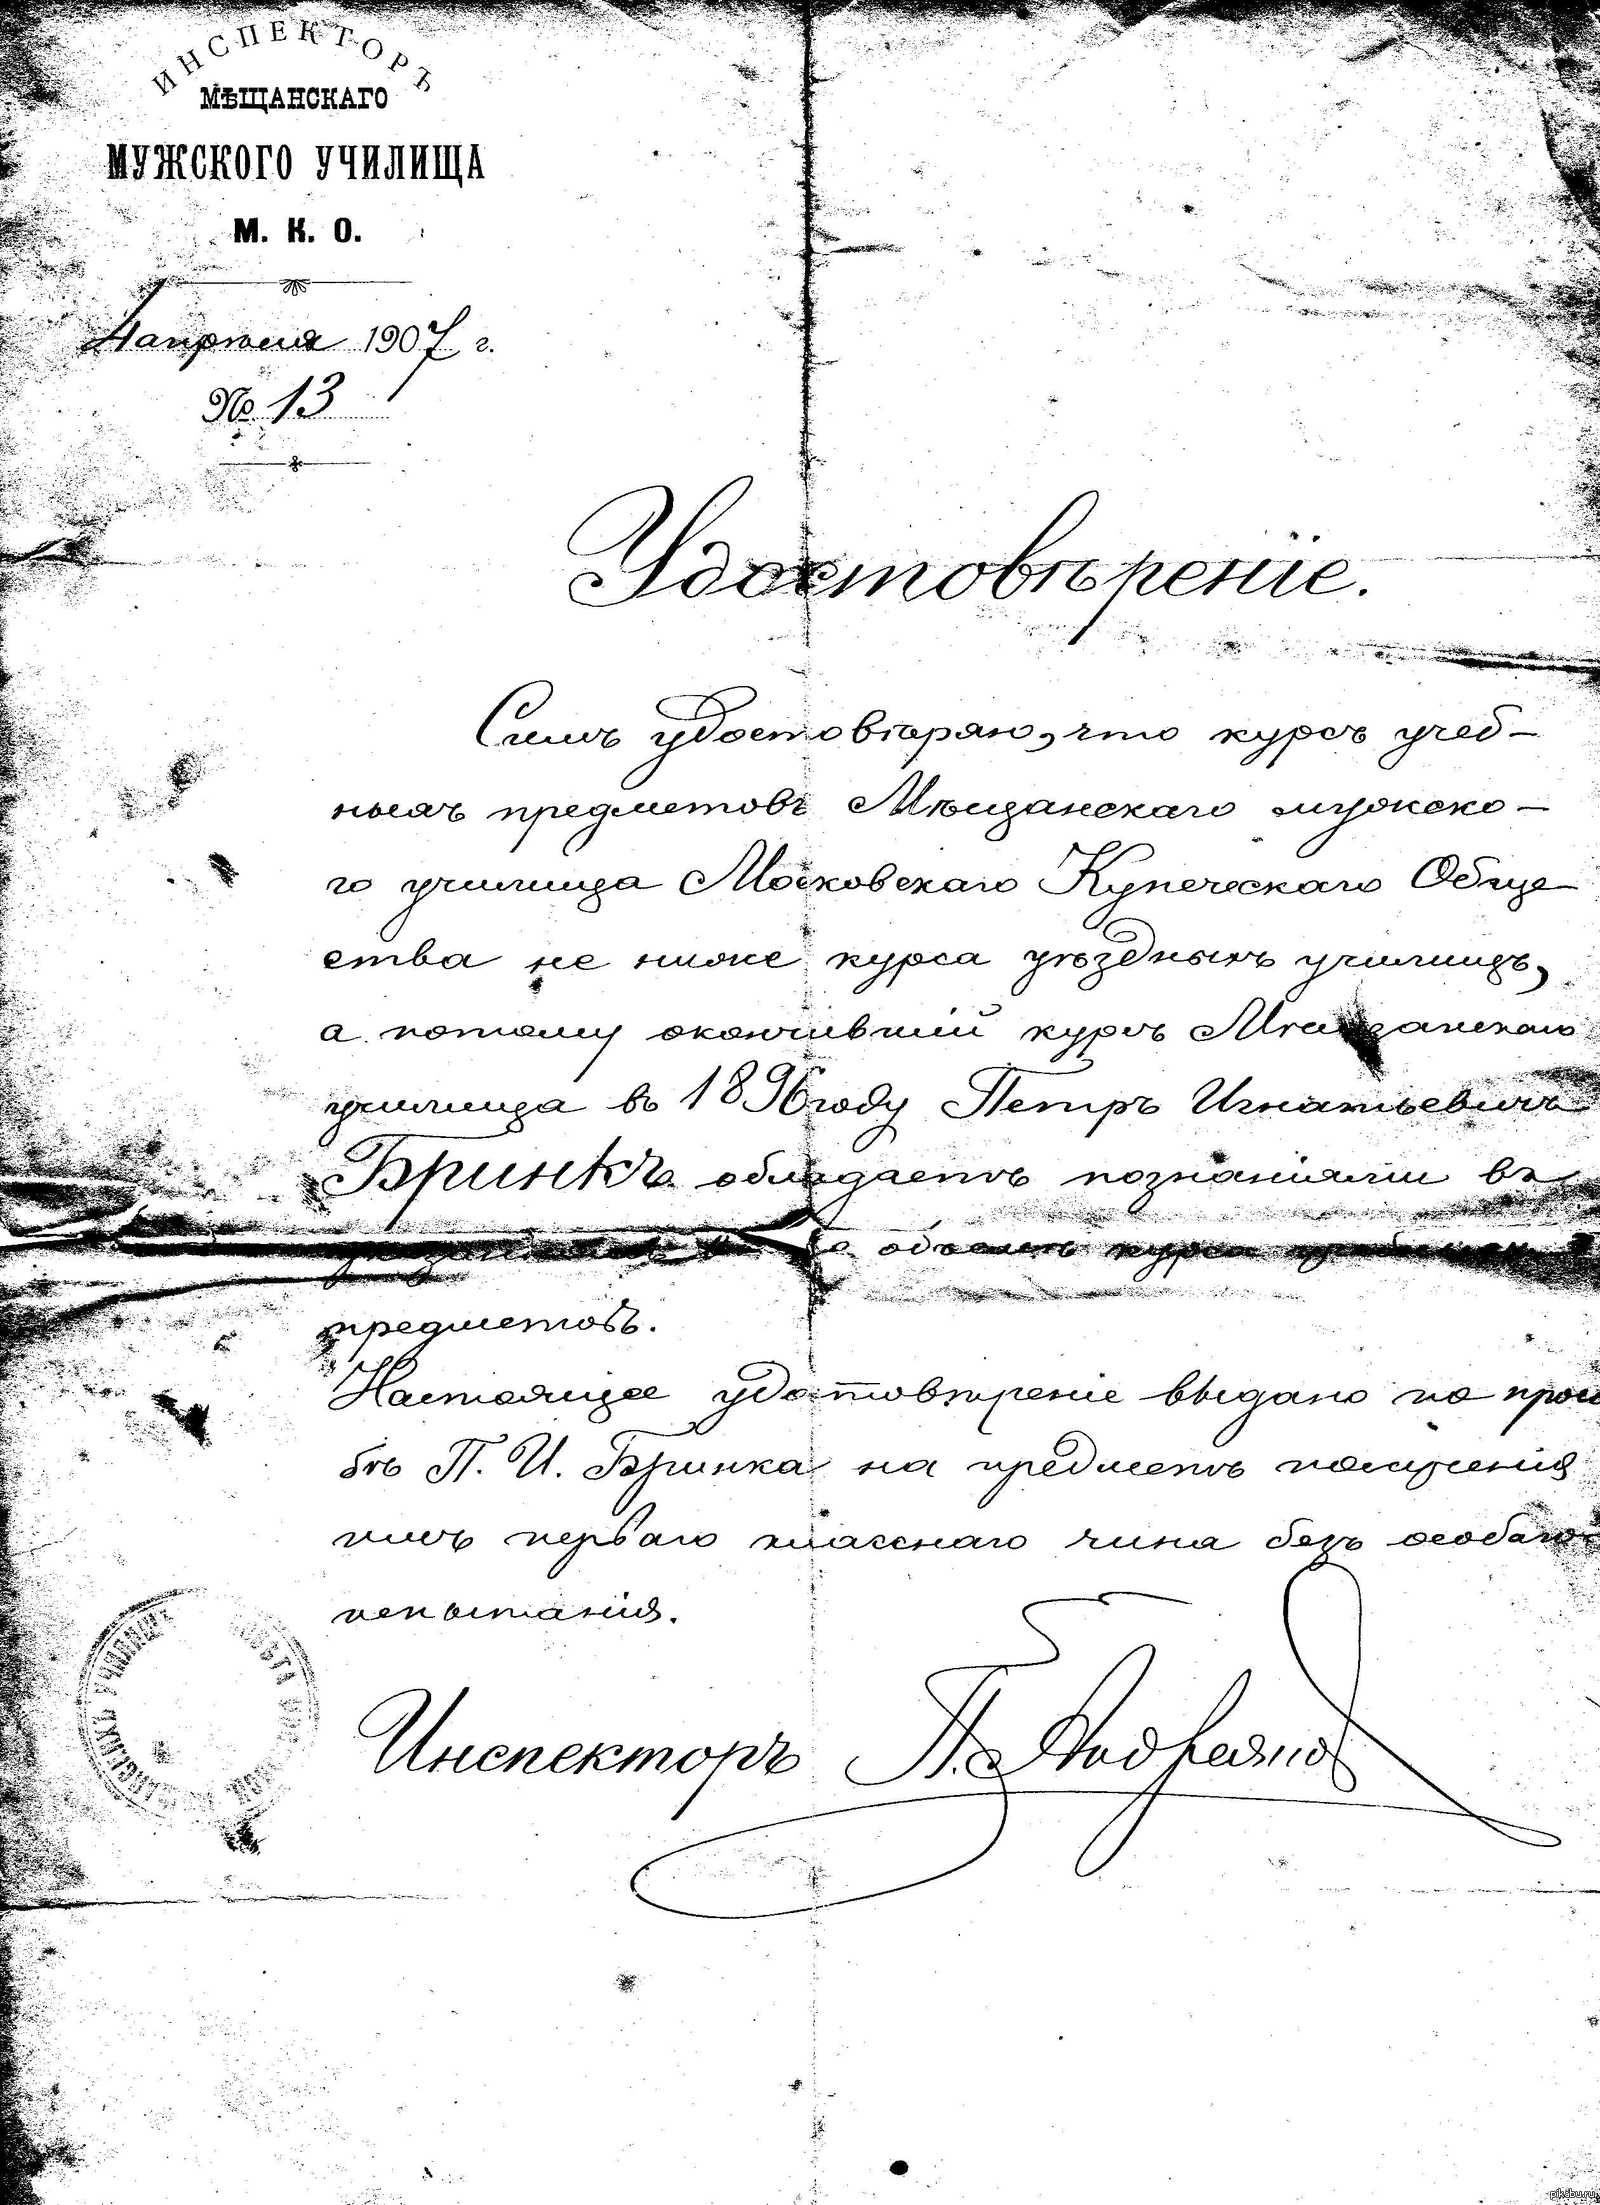 ИНСПЕКТОРЪ
МѢЩАНСКАГО
МУЖСКОГО УЧИЛИЩА
М. К. О.
4 апрѣля 1907 г.
№ 13
Удостовѣреніе.
Симъ удостовѣряю, что курсъ учеб-
ныхъ предметовъ Мѣщанскаго мужско-
го училища Московскаго Купеческаго Обще-
ства не ниже курса уѣздныхъ училищъ,
а потому окончившій курсъ Мѣщанскаго
училища въ 1896 году Петръ Игнатьевичъ
Бринкъ обладаетъ познаніями въ
объемѣ курса
предметовъ.
Настоящее удостовѣреніе выдано по прось
бѣ П. И. Бринка на предметъ полученія
имъ перваго класснаго чина безъ особаго
испытанія.
Инспекторъ П.
pikabu.ru